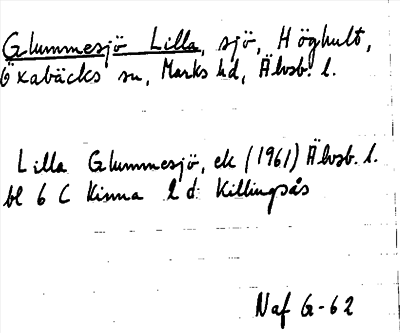 Glummesjö Lilla, sjö, Höghult,
Öxabäcks sn, Marks hd, Älvsb. l.
Lilla Glummesjö, ek (1961) Älvsb. l.
bl 6 C Kinna l d Killingsås
Naf G-62